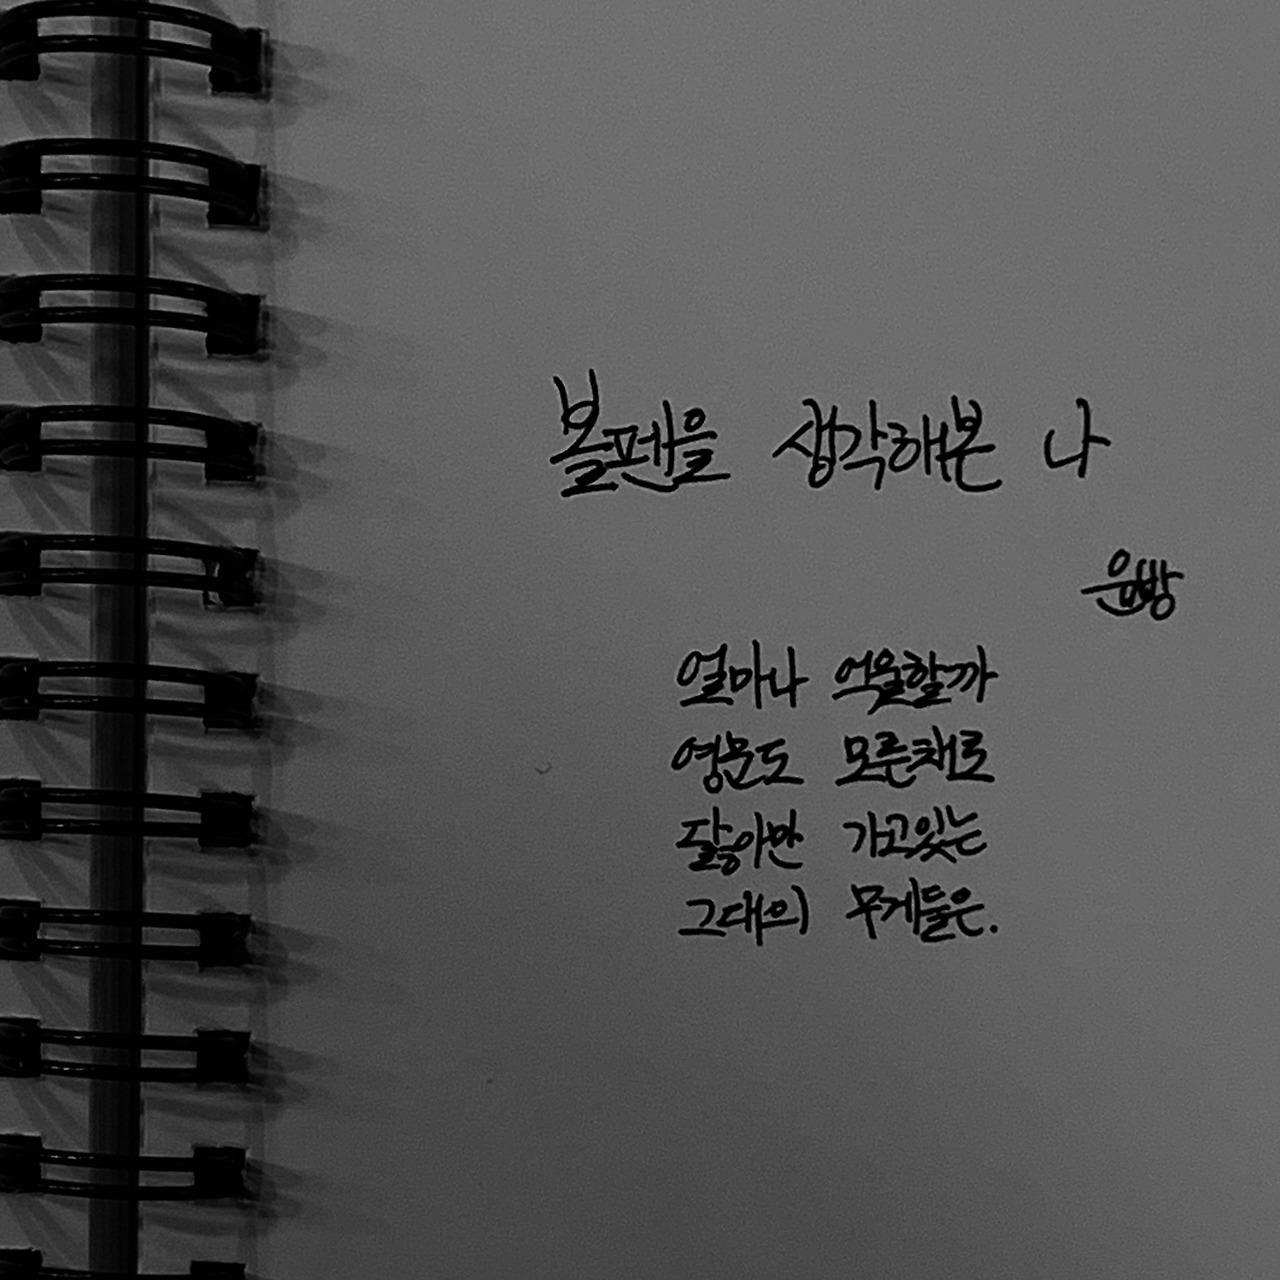 볼펜을 생각해본 나
윤빵
얼마나 억울할까
영문도 모른채로
닳아만 가고있는
그대의 무게들은.